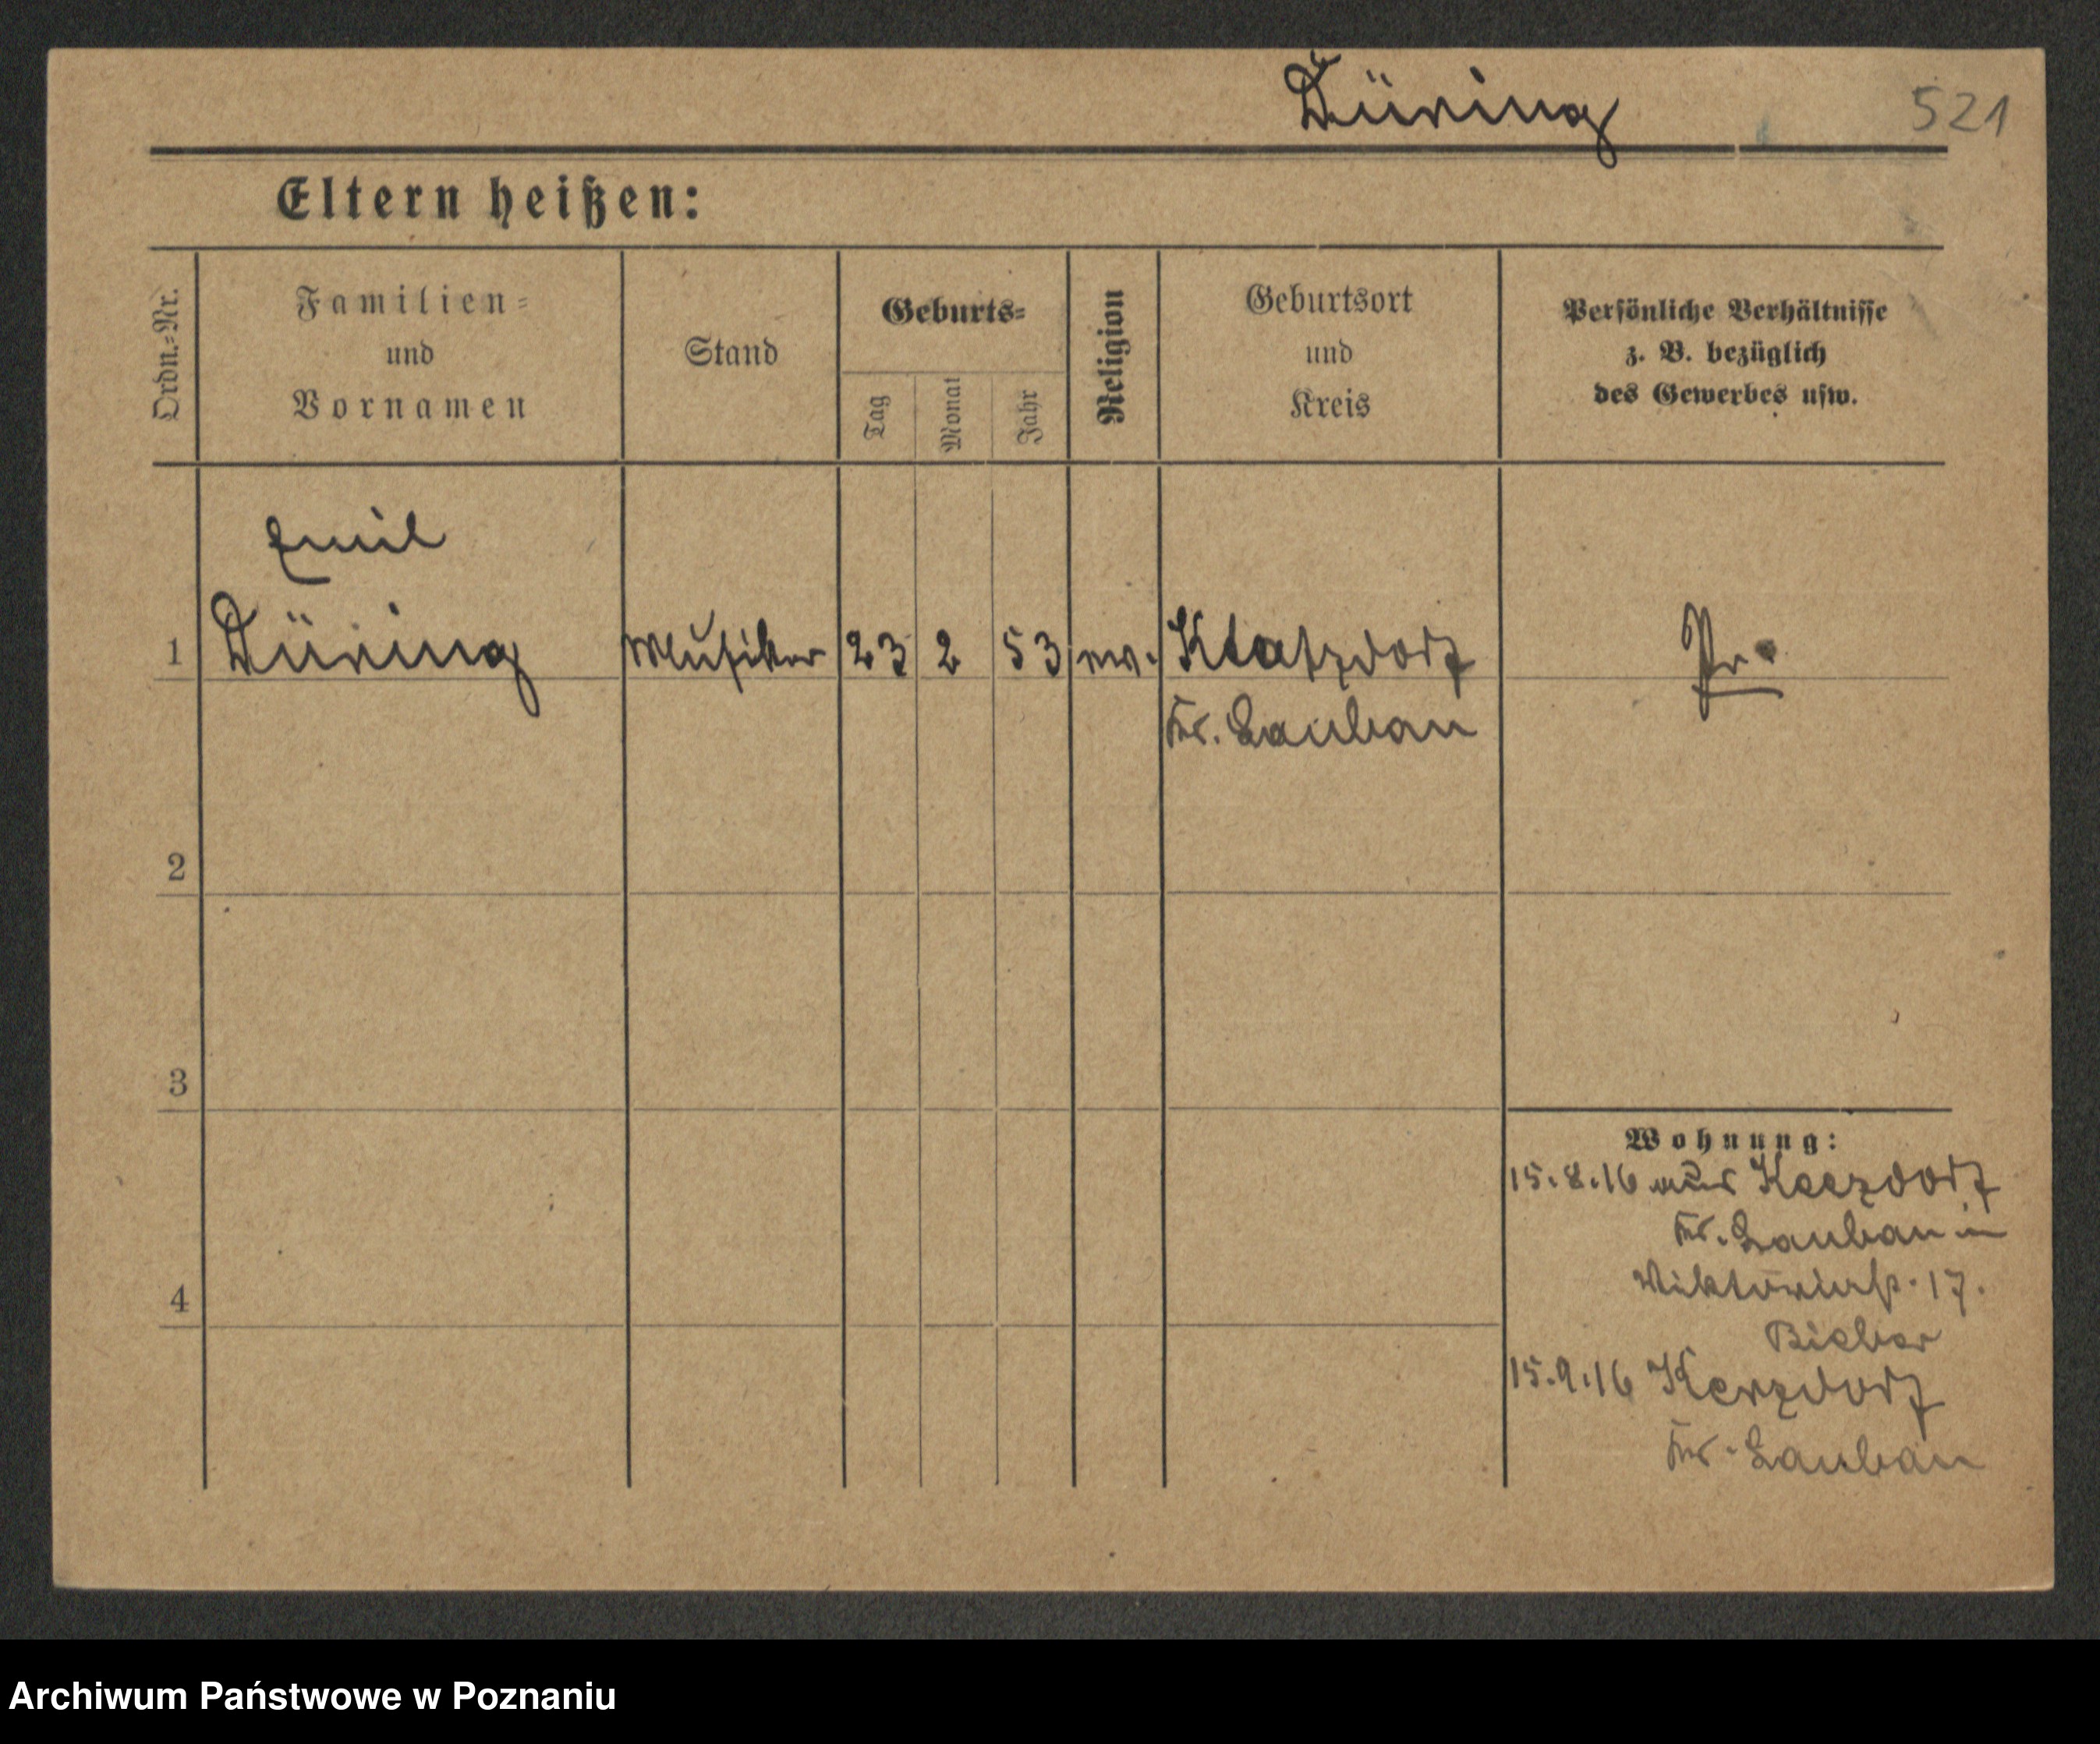 Düring 521
Eltern heißen:
Ordn.-Nr.
Familien-
und
Vornamen
Stand
Geburts-
Tag
Monat
Jahr
Religion
Geburtsort
und
Kreis
Persönliche Verhältnisse
z. B. bezüglich
des Gewerbes usw.
Emil
1 Düring Musiker 23 2 53 ev. Katzdorf Pr.
Kr. Lauban
2
3
4
Wohnung:
15.8.16 aus Kerzdorf
Kr. Lauban in
Viktoriastr. 17.
Bieber
15.9.16 Kerzdorf
Kr. Lauban
Archiwum Państwowe w Poznaniu